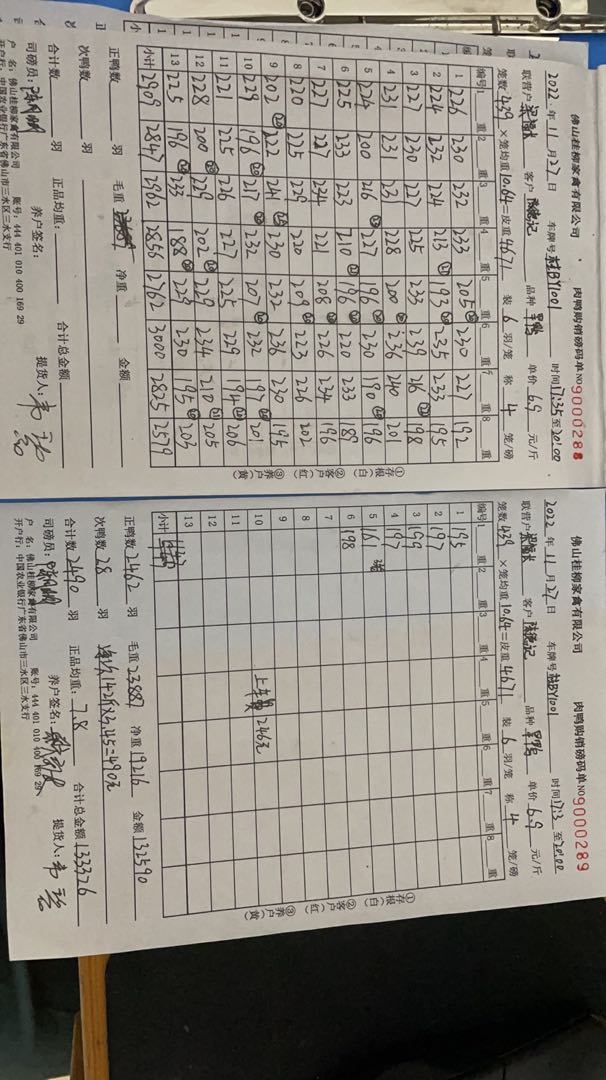 佛山桂柳家禽有限公司 肉鸭购销磅码单 NO 9000288
2022 年 11 月 27 日 车牌号 桂BY1001 时间 17:35 至 20:00
联营户 客户 陈德记 品种 单价 6.9 元/斤
笼数 439 ×笼均重 10.64 =皮重 4671 装 6 羽/笼 称 4 笼/磅
编号 重1 重2 重3 重4 重5 重6 重7 重8
1 226 230 232 233 205 230 227 192
2 224 232 224 213 193 235 233 195
3 227 230 227 225 233 239 198
4 231 231 231 228 200 236 240 201
5 224 200 216 227 196 230 190 196
6 225 233 223 210 196 220 233 189
7 227 227 234 221 208 226 234 196
8 220 225 229 220 209 223 226 202
9 202 222 241 230 232 236 230 195
10 229 198 217 232 207 232 197 201
11 221 225 226 227 225 229 194 206
12 228 200 229 202 229 234 210 205
13 225 196 233 188 229 230 195 203
小计 2909 2847 2962 2856 2762 3000 2825 2579
①存根(白) ②客户(红) ③养户(黄)
正鸭数 羽 毛重 净重 金额
次鸭数 羽
合计数 羽 正品均重: 合计总金额
司磅员: 养户签名: 提货人:
户 名:佛山桂柳家禽有限公司 账号:444 401 010 400 169 29
开户行:中国农业银行广东省佛山市三水区三水支行
佛山桂柳家禽有限公司 肉鸭购销磅码单 NO 9000289
2022 年 11 月 27 日 车牌号 桂BY1001 时间 17:3 至 20:00
联营户 客户 陈德记 品种 单价 6.9 元/斤
笼数 439 ×笼均重 10.64 =皮重 4671 装 6 羽/笼 称 4 笼/磅
编号 重1 重2 重3 重4 重5 重6 重7 重8
1 195
2 197
3 199
4 197
5 161
6 198
7
8
9
10 上车费 246元
11
12
13
小计 1147
①存根(白) ②客户(红) ③养户(黄)
正鸭数 2462 羽 毛重 23887 净重 19216 金额 132590
次鸭数 28 羽 142斤×3.45=490元
合计数 2490 羽 正品均重: 7.8 合计总金额 133326
司磅员: 养户签名: 提货人:
户 名:佛山桂柳家禽有限公司 账号:444 401 010 400 169 29
开户行:中国农业银行广东省佛山市三水区三水支行